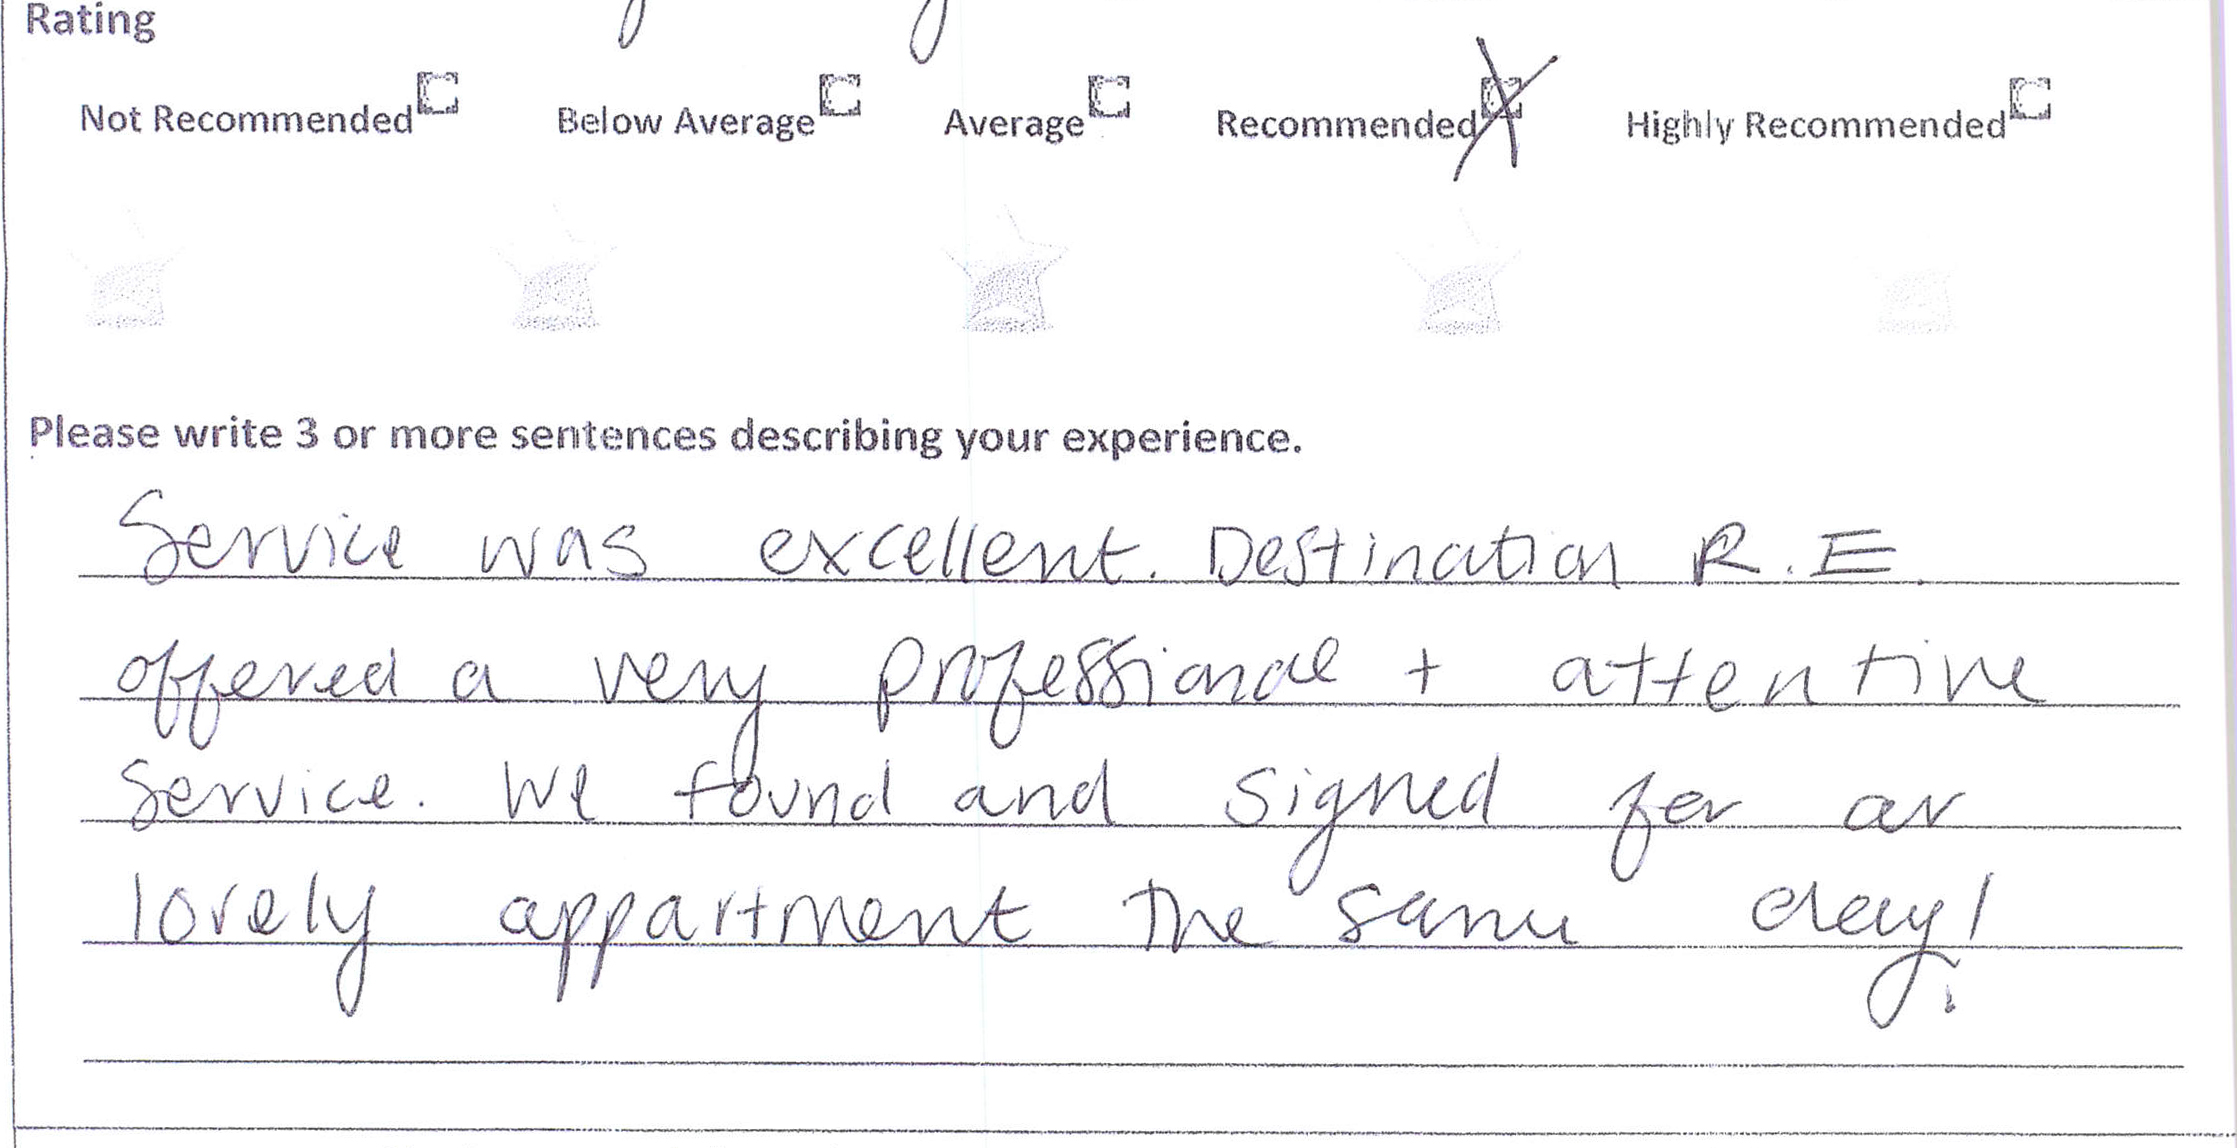 Rating
Not Recommended Below Average Average Recommended Highly Recommended
Please write 3 or more sentences describing your experience.
Service was excellent. Destination R.E.
offered a very professional + attentive
service. We found and signed for an
lovely appartment the same day!